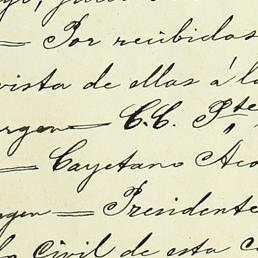 = Por recibidas
vista de ellas á la
rgen = C.C. Pte
= Cayetano Aco
rgen = Presidente
Civil de esta c